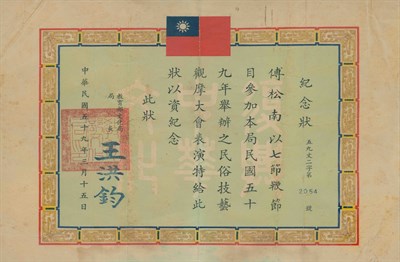 紀念狀
五九文二字第2054號
傅松南以七節鞭節
目參加本局民國五十
九年舉辦之民俗技藝
觀摩大會表演特給此
狀以資紀念
此狀
局長
王洪鈞
中華民國五十九年三月十五日